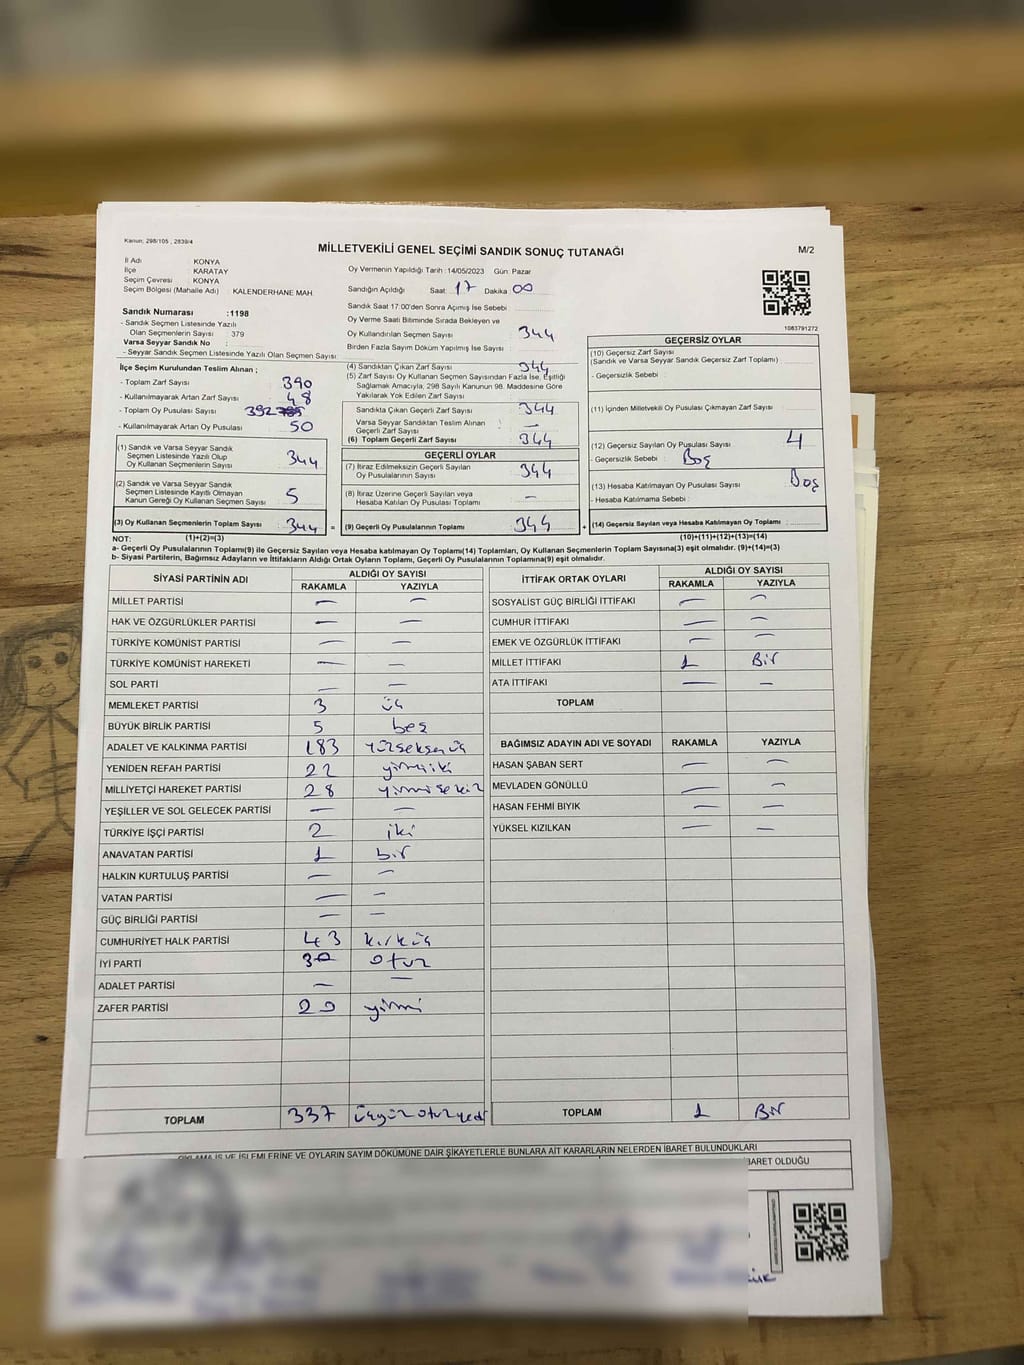 Kanun; 298/105 , 2839/4
MİLLETVEKİLİ GENEL SEÇİMİ SANDIK SONUÇ TUTANAĞI
M/2
İl Adı : KONYA
İlçe : KARATAY
Seçim Çevresi : KONYA
Seçim Bölgesi (Mahalle Adı) : KALENDERHANE MAH.
Sandık Numarası :1198
- Sandık Seçmen Listesinde Yazılı
Olan Seçmenlerin Sayısı : 379
Varsa Seyyar Sandık No :
- Seyyar Sandık Seçmen Listesinde Yazılı Olan Seçmen Sayısı :
Oy Vermenin Yapıldığı Tarih :14/05/2023 Gün: Pazar
Sandığın Açıldığı Saat: 17 Dakika: 00
Sandık Saat 17:00'den Sonra Açımış İse Sebebi :
Oy Verme Saati Bitiminde Sırada Bekleyen ve
Oy Kullandırılan Seçmen Sayısı : 344
Birden Fazla Sayım Döküm Yapılmış İse Sayısı :
1083791272
İlçe Seçim Kurulundan Teslim Alınan ;
- Toplam Zarf Sayısı : 390
- Kullanılmayarak Artan Zarf Sayısı : 48
- Toplam Oy Pusulası Sayısı : 392
- Kullanılmayarak Artan Oy Pusulası : 50
(1) Sandık ve Varsa Seyyar Sandık
Seçmen Listesinde Yazılı Olup
Oy Kullanan Seçmenlerin Sayısı : 344
(2) Sandık ve Varsa Seyyar Sandık
Seçmen Listesinde Kayıtlı Olmayan
Kanun Gereği Oy Kullanan Seçmen Sayısı : 5
(3) Oy Kullanan Seçmenlerin Toplam Sayısı : 344
(4) Sandıktan Çıkan Zarf Sayısı : 344
(5) Zarf Sayısı Oy Kullanan Seçmen Sayısından Fazla İse, Eşitliği
Sağlamak Amacıyla, 298 Sayılı Kanunun 98. Maddesine Göre
Yakılarak Yok Edilen Zarf Sayısı :
Sandıkta Çıkan Geçerli Zarf Sayısı : 344
Varsa Seyyar Sandıktan Teslim Alınan
Geçerli Zarf Sayısı : —
(6) Toplam Geçerli Zarf Sayısı : 344
GEÇERLİ OYLAR
(7) İtiraz Edilmeksizin Geçerli Sayılan
Oy Pusulalarının Sayısı : 344
(8) İtiraz Üzerine Geçerli Sayılan veya
Hesaba Katılan Oy Pusulası Toplamı : —
= (9) Geçerli Oy Pusulalarının Toplamı : 344 +
GEÇERSİZ OYLAR
(10) Geçersiz Zarf Sayısı
(Sandık ve Varsa Seyyar Sandık Geçersiz Zarf Toplamı) :
- Geçersizlik Sebebi :
(11) İçinden Milletvekili Oy Pusulası Çıkmayan Zarf Sayısı :
(12) Geçersiz Sayılan Oy Pusulası Sayısı : 4
- Geçersizlik Sebebi : Boş
(13) Hesaba Katılmayan Oy Pusulası Sayısı : Boş
- Hesaba Katılmama Sebebi :
(14) Geçersiz Sayılan veya Hesaba Katılmayan Oy Toplamı :
NOT: (1)+(2)=(3)
(10)+(11)+(12)+(13)=(14)
a- Geçerli Oy Pusulalarının Toplamı(9) ile Geçersiz Sayılan veya Hesaba katılmayan Oy Toplamı(14) Toplamları, Oy Kullanan Seçmenlerin Toplam Sayısına(3) eşit olmalıdır. (9)+(14)=(3)
b- Siyasi Partilerin, Bağımsız Adayların ve İttifakların Aldığı Ortak Oyların Toplamı, Geçerli Oy Pusulalarının Toplamına(9) eşit olmalıdır.
SİYASİ PARTİNİN ADI
ALDIĞI OY SAYISI
RAKAMLA YAZIYLA
MİLLET PARTİSİ — —
HAK VE ÖZGÜRLÜKLER PARTİSİ — —
TÜRKİYE KOMÜNİST PARTİSİ — —
TÜRKİYE KOMÜNİST HAREKETİ — —
SOL PARTİ — —
MEMLEKET PARTİSİ 3 üç
BÜYÜK BİRLİK PARTİSİ 5 beş
ADALET VE KALKINMA PARTİSİ 183 yüzseksenüç
YENİDEN REFAH PARTİSİ 22 yirmiiki
MİLLİYETÇİ HAREKET PARTİSİ 28 yirmisekiz
YEŞİLLER VE SOL GELECEK PARTİSİ — —
TÜRKİYE İŞÇİ PARTİSİ 2 iki
ANAVATAN PARTİSİ 1 bir
HALKIN KURTULUŞ PARTİSİ — —
VATAN PARTİSİ — —
GÜÇ BİRLİĞİ PARTİSİ — —
CUMHURİYET HALK PARTİSİ 43 kırküç
İYİ PARTİ 30 otuz
ADALET PARTİSİ — —
ZAFER PARTİSİ 20 yirmi
TOPLAM 337 üçyüzotuzyedi
İTTİFAK ORTAK OYLARI
ALDIĞI OY SAYISI
RAKAMLA YAZIYLA
SOSYALİST GÜÇ BİRLİĞİ İTTİFAKI — —
CUMHUR İTTİFAKI — —
EMEK VE ÖZGÜRLÜK İTTİFAKI — —
MİLLET İTTİFAKI 1 Bir
ATA İTTİFAKI — —
TOPLAM
BAĞIMSIZ ADAYIN ADI VE SOYADI RAKAMLA YAZIYLA
HASAN ŞABAN SERT — —
MEVLADEN GÖNÜLLÜ — —
HASAN FEHMİ BIYIK — —
YÜKSEL KIZILKAN — —
TOPLAM 1 Bir
İŞ VE İŞLEMLERİNE VE OYLARIN SAYIM DÖKÜMÜNE DAİR ŞİKAYETLERLE BUNLARA AİT KARARLARIN NELERDEN İBARET BULUNDUKLARI
BARET OLDUĞU